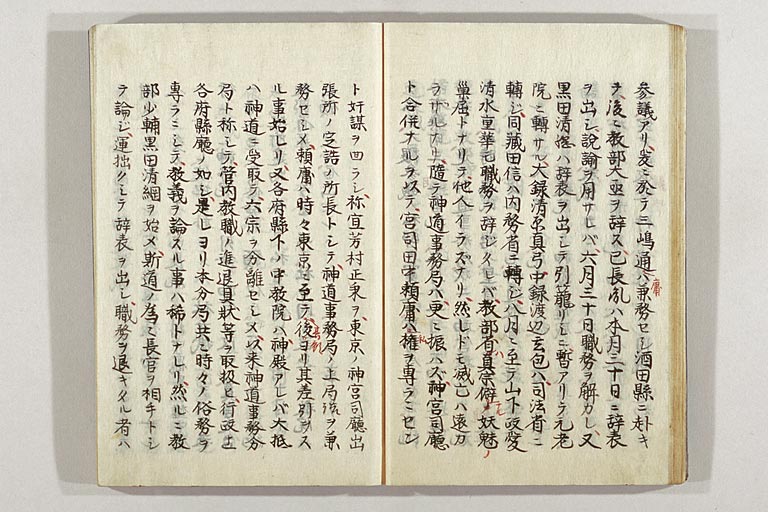 参議アリ、爰ニ於テ三嶋通庸ハ兼務セシ酒田縣ニ赴キ
ヲ、後ニ教部大丞ヲ辞ス、已長胤ハ本月三十日ニ辞表
ヲ出シ説諭ヲ用サレバ、六月三十日職務ヲ解カレ、又
黒田清綱ハ辞表ヲ出シテ引籠リシニ暫アリテ元老
院ニ轉サル、大録清原真弓中録渡辺玄包ハ司法省ニ
轉シ、同藏田信ハ内務省ニ轉シ、八月ニ至テ山下政愛
清水重華モ職務ヲ辞シケレバ、教部省ハ真宗僻ノ妖魅ノ
巣屈トナリテ他人イラズナリ、然レドモ滅亡ハ遠カ
ラザルナリ、随テ神道事務局ハ更ニ振ハズ、神宮司廳
ト合併ナルヲ以テ宮司田中頼庸ハ権ヲ専ラニセン
ト奸謀ヲ回ラシ、祢宜芳村正秉ヲ、東京ノ神宮司廳出
張所ノ定詰ノ所長トシテ、神道事務局ノ上局洒ヲ兼
務セシメ、頼庸ハ時々東京ニ至テ、後ヨリ其差引ヲス
ル事始レリ、又各府縣下ハ中教院ハ神殿アレバ大抵
ハ神道ニ受取テ六宗ヲ分離セシメ、以来神道事務分
局ト称シテ、管内教職ノ進退具状等ヲ取扱ヒ行政上
各府縣廳ノ如シ、是レヨリ本分局共ニ時々ノ俗務ヲ
専ラニシテ、教義ヲ論スル事ハ稀トナレリ、然ルニ教
部少輔黒田清綱ヲ始メ、斯道ノ為ニ長官ヲ相手トシ
テ論シ、運拙クシテ辞表ヲ出シ、職務ヲ退キタル者ハ